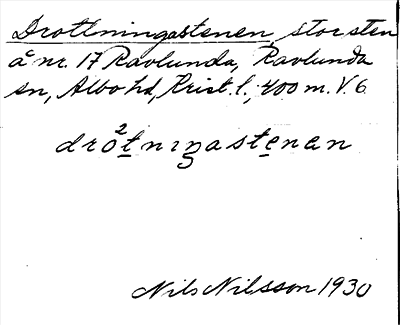 Drottningastenen, stor sten
å nr. 17 Ravlunda, Ravlunda
sn, Albo hd, Krist. l., 400 m. V. 6
dro²tnıŋastenan
Nils Nilsson 1930